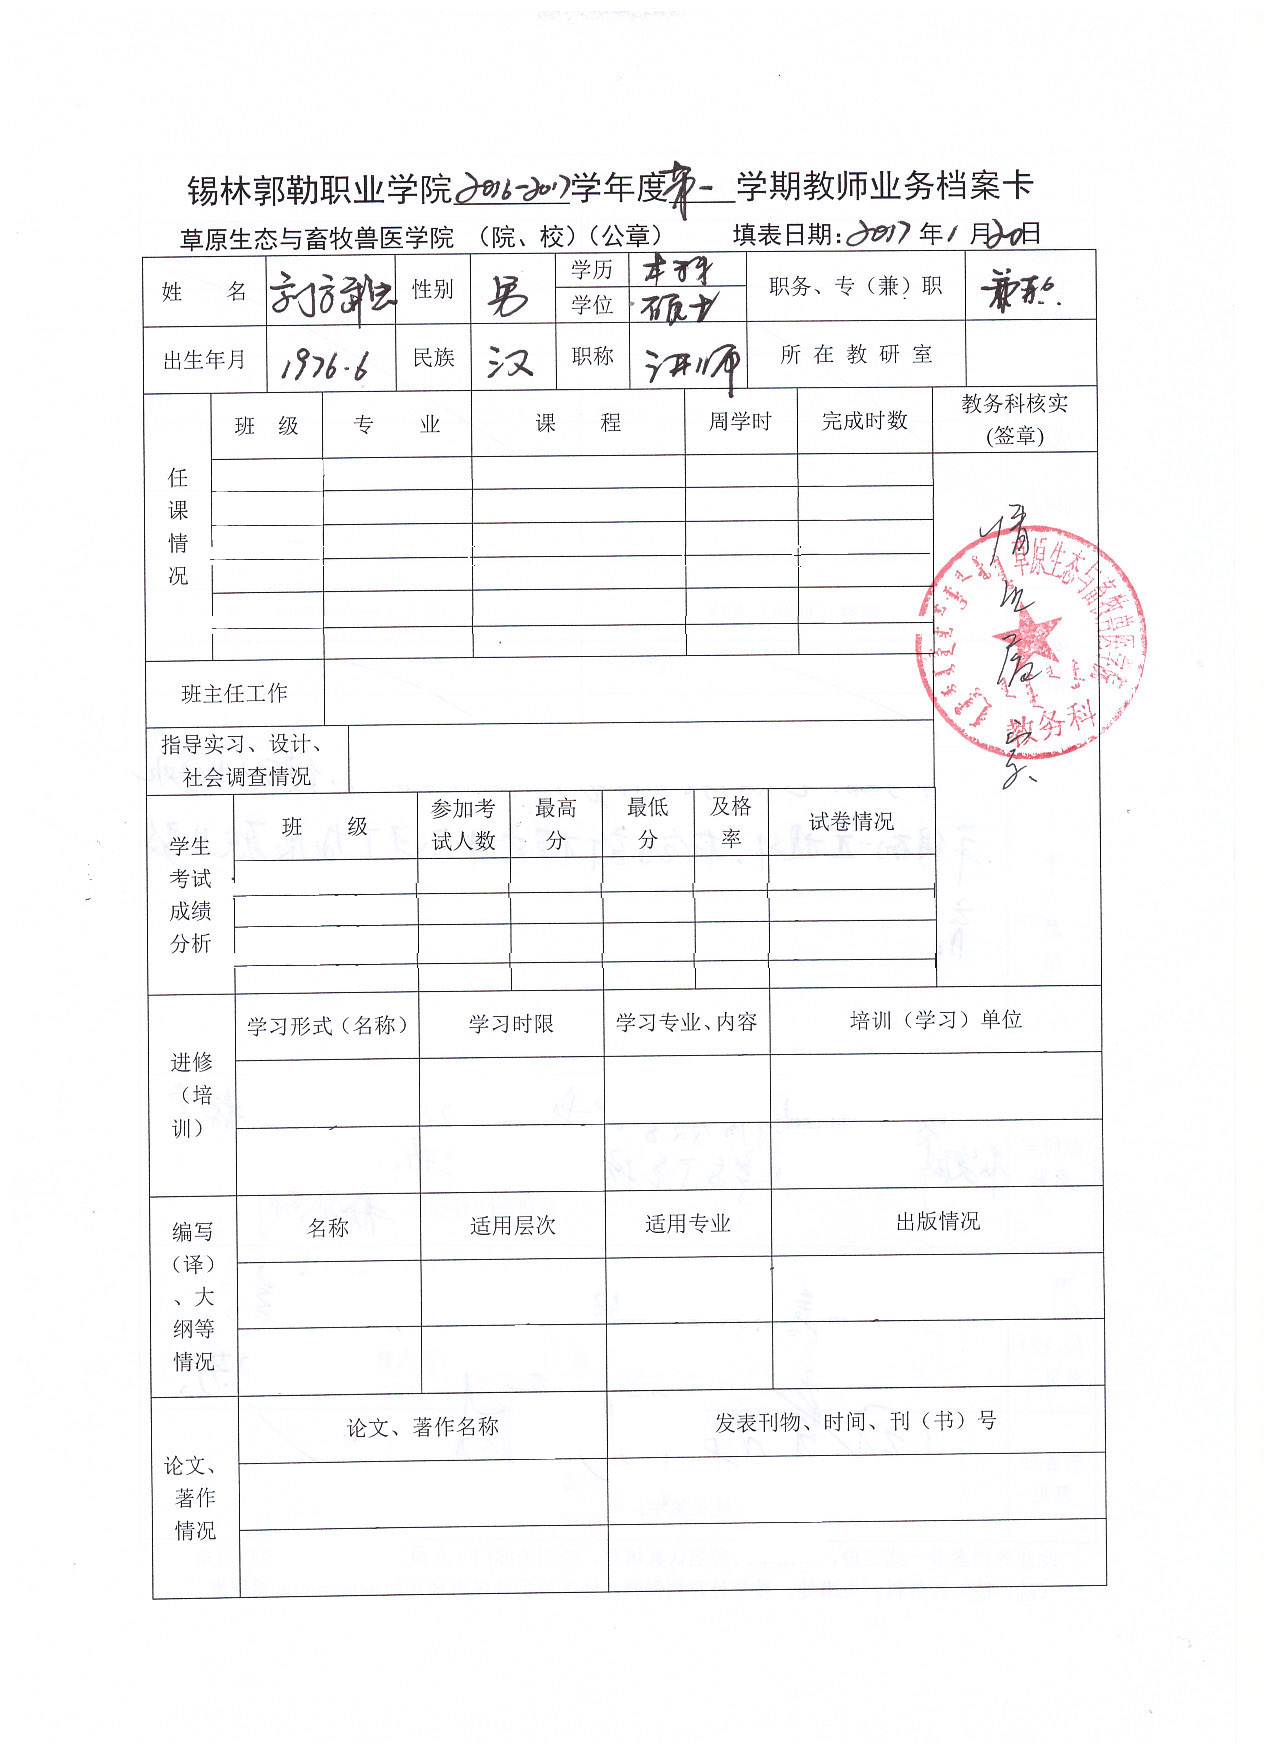 锡林郭勒职业学院2016-2017学年度第一学期教师业务档案卡
草原生态与畜牧兽医学院（院、校）（公章） 填表日期：2017年1月20日
姓 名 性别 男 学历 本科 职务、专（兼）职 兼职
学位 硕士
出生年月 1976.6 民族 汉 职称 讲师 所在教研室
任课情况 班 级 专 业 课 程 周学时 完成时数 教务科核实(签章)
情况属实
草原生态与畜牧兽医学院
教务科
班主任工作
指导实习、设计、社会调查情况
学生考试成绩分析 班 级 参加考试人数 最高分 最低分 及格率 试卷情况
进修（培训） 学习形式（名称） 学习时限 学习专业、内容 培训（学习）单位
编写（译）、大纲等情况 名称 适用层次 适用专业 出版情况
论文、著作情况 论文、著作名称 发表刊物、时间、刊（书）号